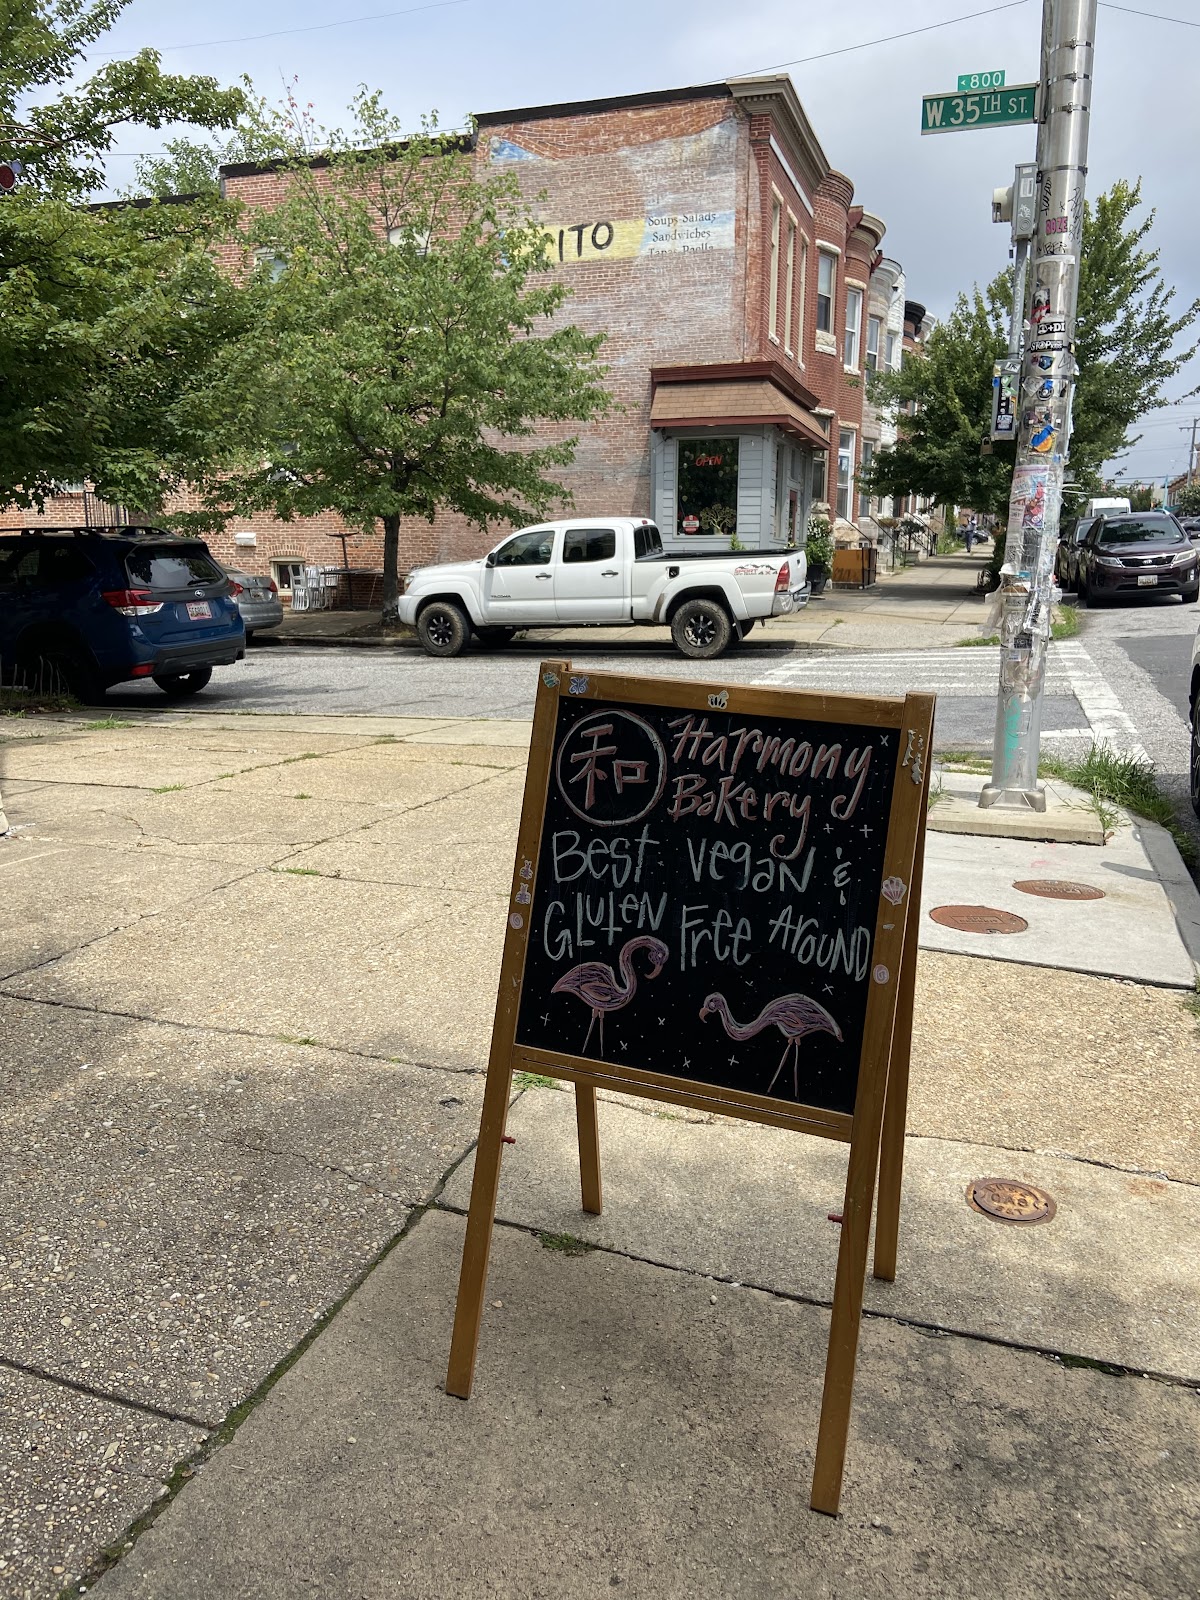 < 800
W. 35TH ST.
ITO
Soups Salads
Sandwiches
Tapas Paella
OPEN
TACOMA
和 Harmony
Bakery
Best vegan &
Gluten Free Around
GAS